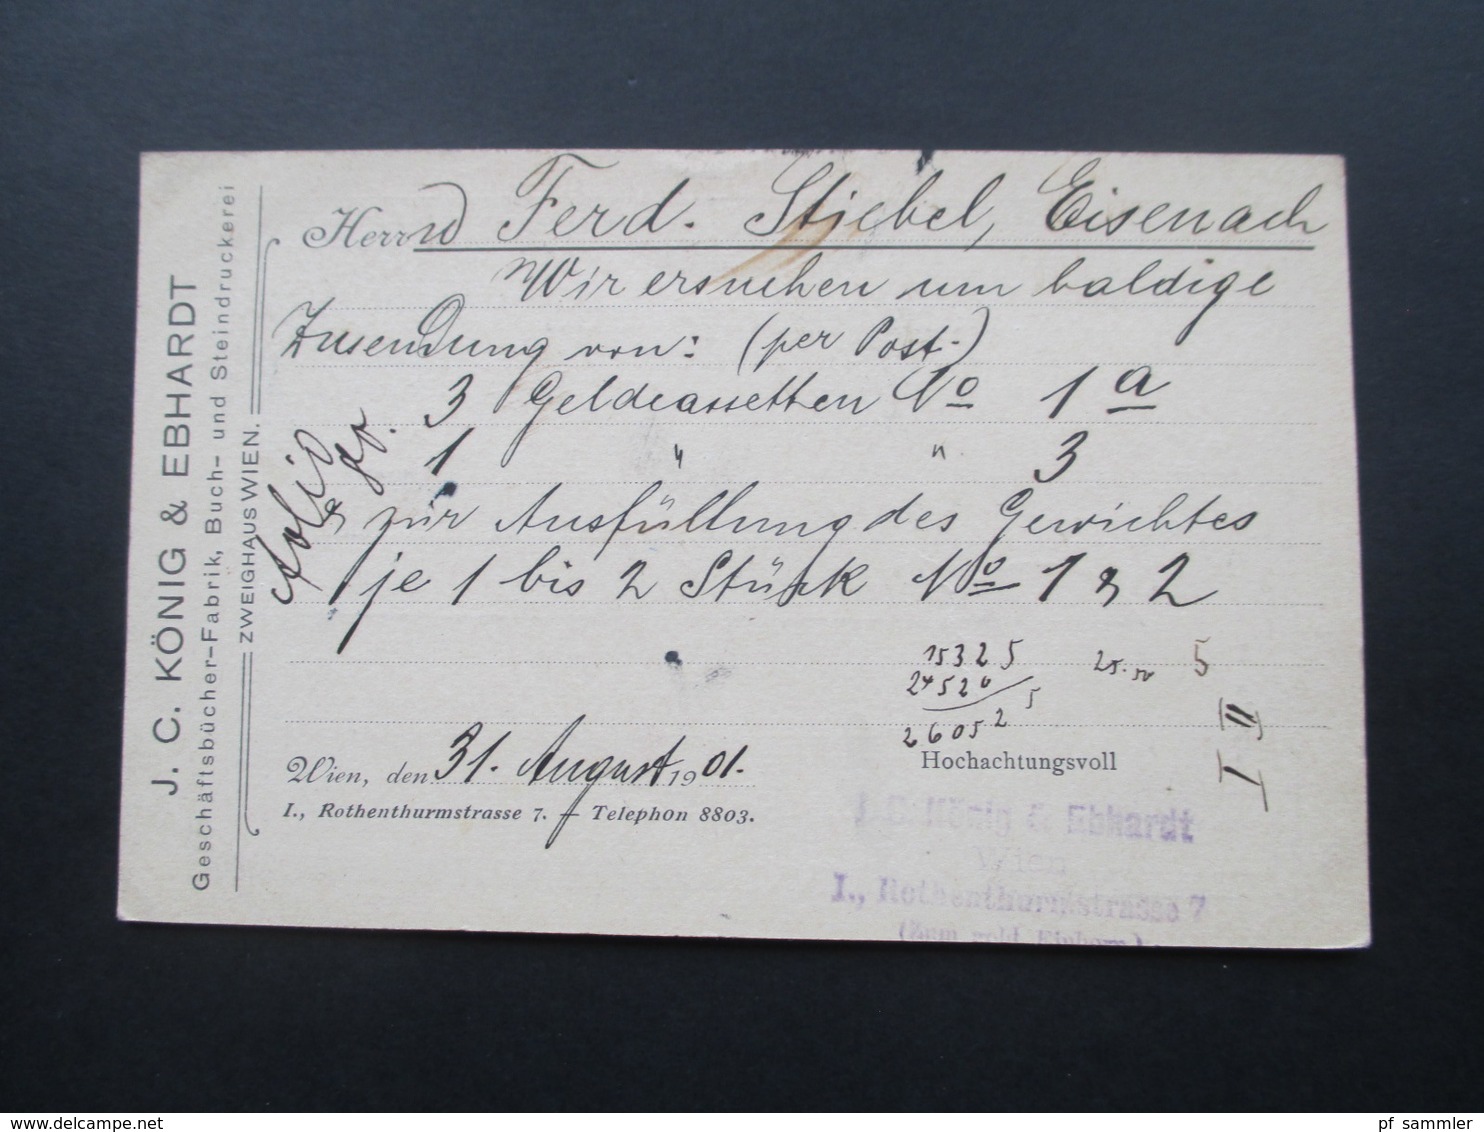 J. C. KÖNIG & EBHARDT
Geschäftsbücher-Fabrik, Buch- und Steindruckerei
ZWEIGHAUS WIEN.
Herrn Ferd. Stiebel, Eisenach
Wir ersuchen um baldige
Zusendung von: (per Post.)
3 Geldcassetten No 1a
1 " " 3
zur Ausfüllung des Gewichtes
je 1 bis 2 Stück No 1 & 2
15325
24520
26052
5
25.50
5
I II
Wien, den 31. August 1901.
Hochachtungsvoll
I., Rothenthurmstrasse 7. — Telephon 8803.
J. C. König & Ebhardt
Wien,
I., Rothenthurmstrasse 7
(Zum gold. Einhorn)
pf_sammler